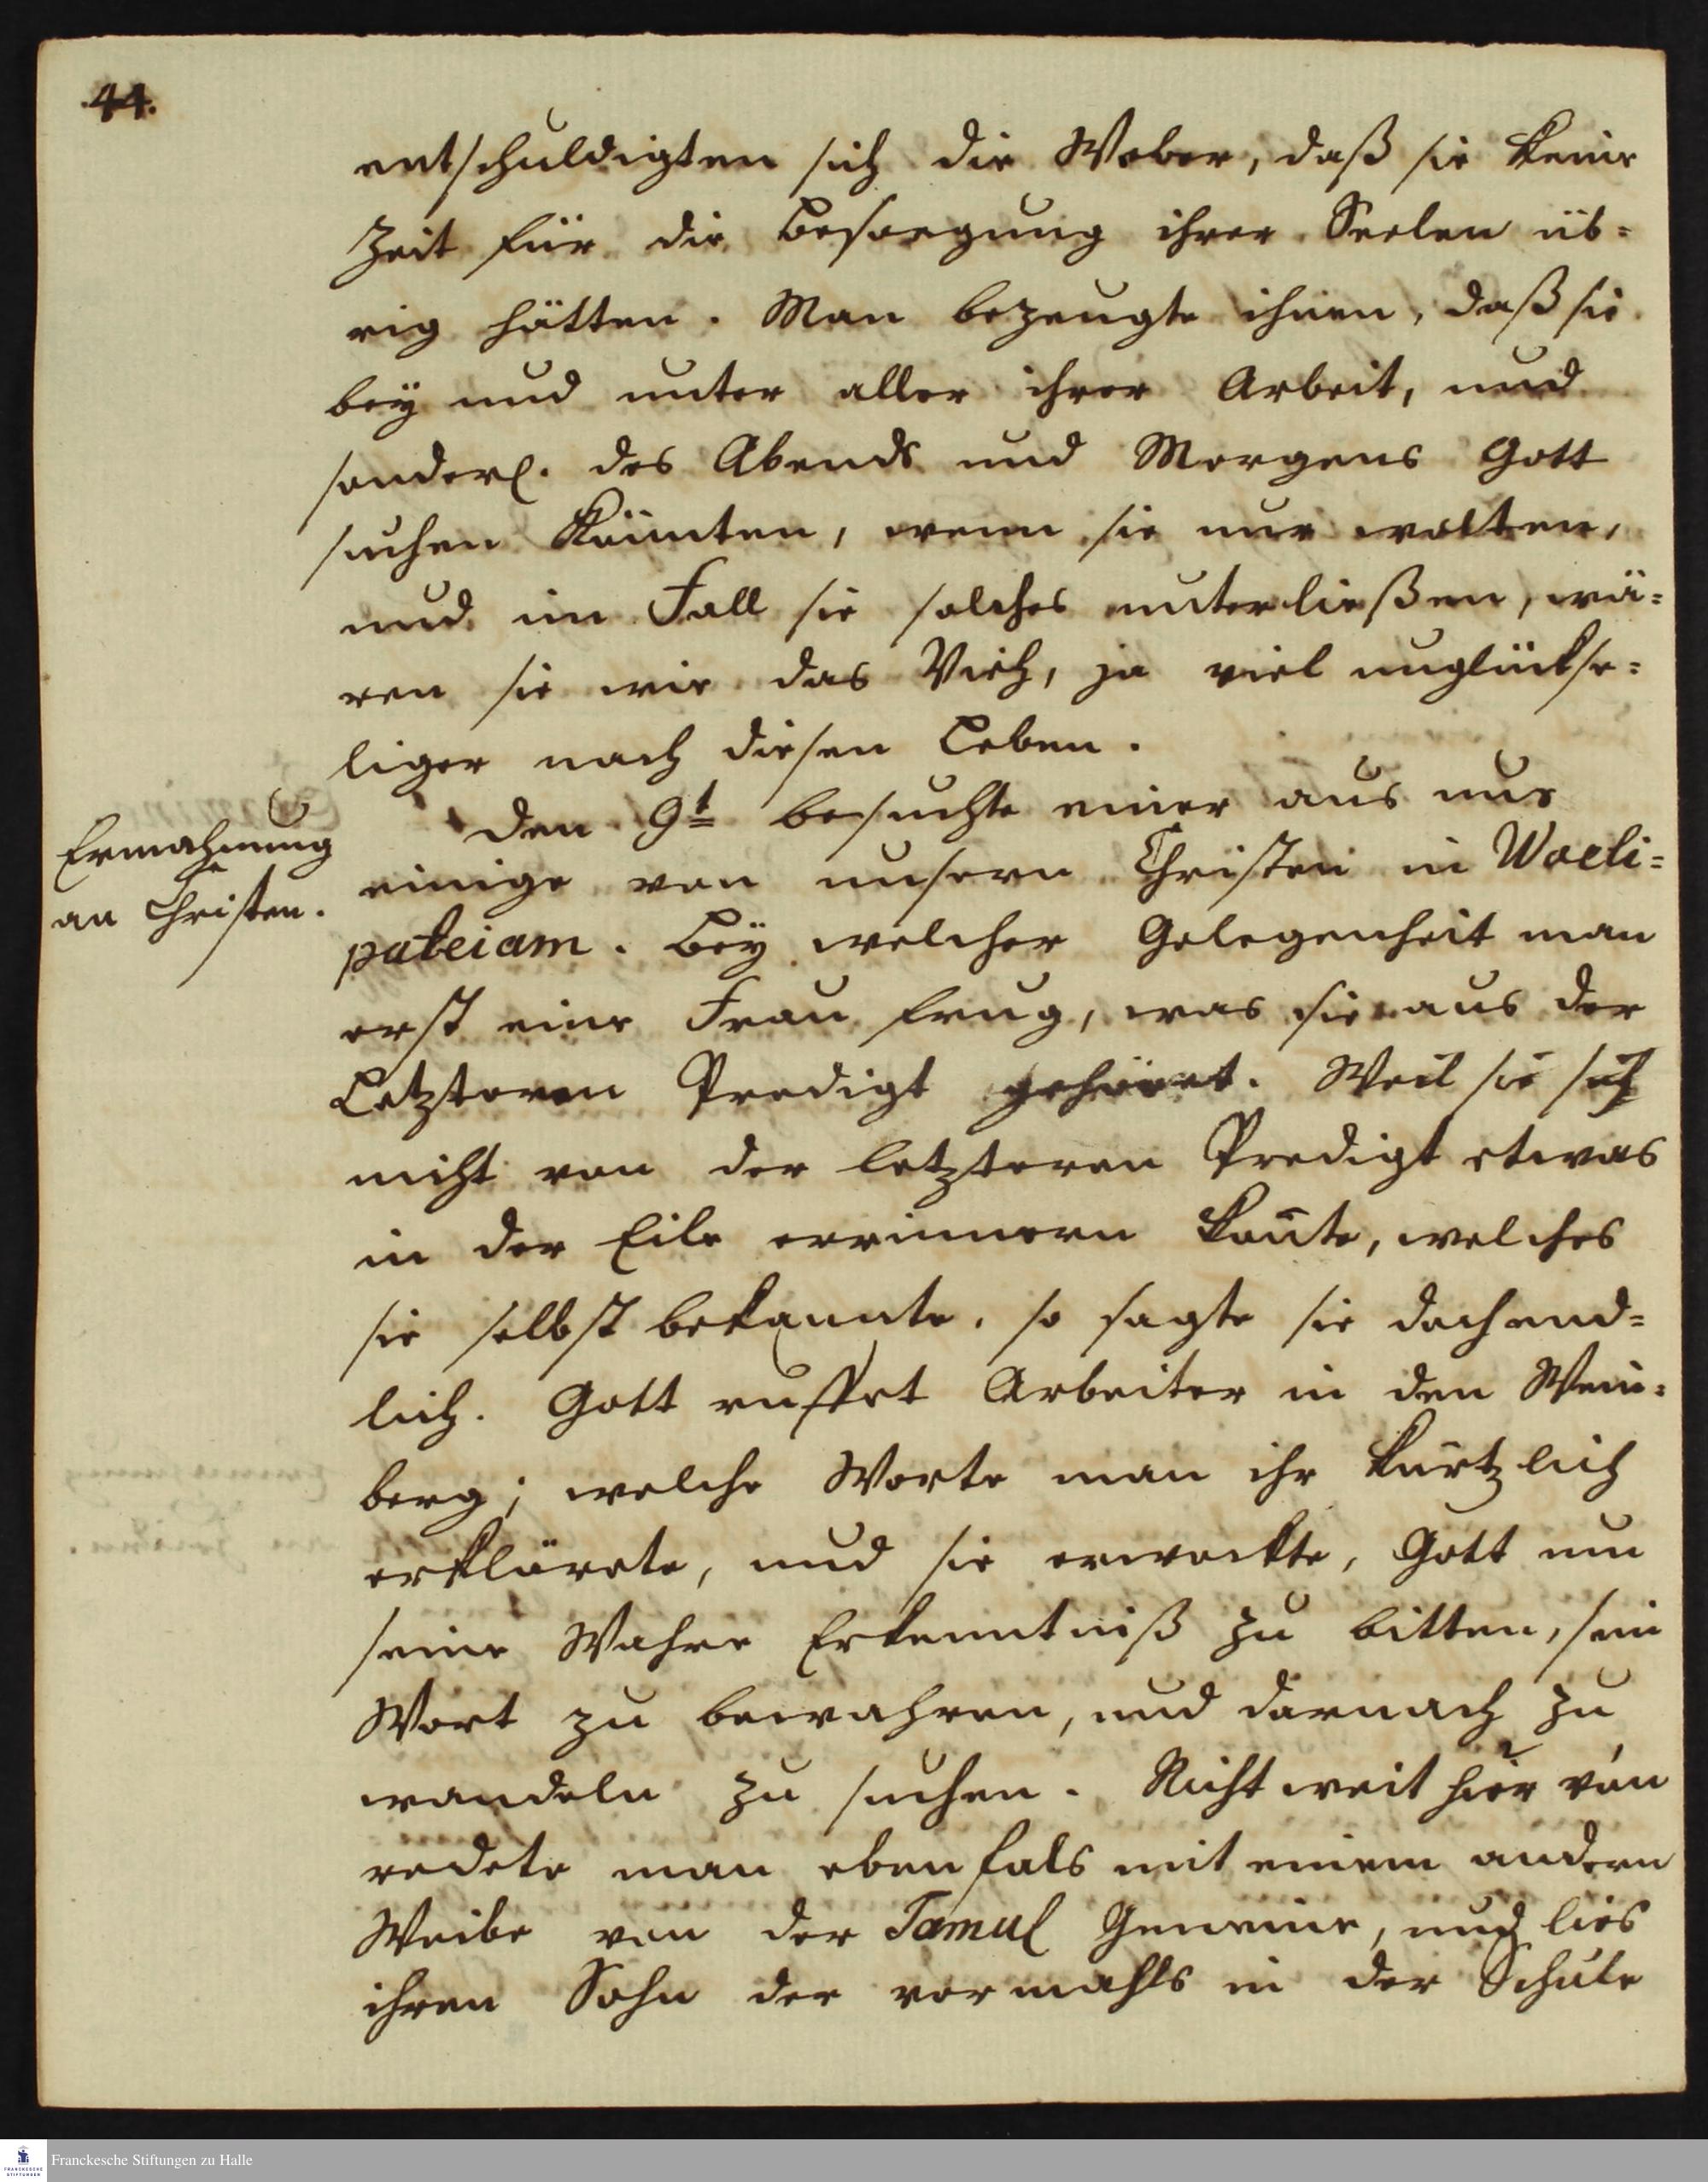 44.
entschuldigten sich die Weber, daß sie keine
Zeit für die Besorgung ihrer Seelen üb=
rig hätten. Man bezeugte ihnen, daß sie
bey und unter aller ihrer Arbeit, und
sonderl. des Abends und Morgens Gott
suchen könnten, wenn sie nur wolten,
und im Fall sie solches unterließen, wä=
ren sie wie das Vieh, ja viel unglückse=
liger nach diesen Leben.
Ermahnung
an Christen.
Den 9t besuchte einer aus uns
einige von unsern Christen in Woeli=
pateiam. Bey welcher Gelegenheit man
erst eine Frau frug, was sie aus der
Letzteren Predigt gehöret. Weil sie sich
nicht von der letzteren Predigt etwas
in der Eile errinnern kon̄te, welches
sie selbst bekannte, so sagte sie doch end=
lich. Gott ruffet Arbeiter in den Wein=
berg; welche Worte man ihr kürtzlich
erklärete, und sie erweckte, Gott um
seine Wahre Erkenntniß zu bitten, sein
Wort zu bewahren, und darnach zu
wandeln zu suchen. Nicht weit hier von
redete man ebenfals mit einem andern
Weibe von der Tamul Gemeine, und lies
ihren Sohn der vormahls in der Schule
Franckesche Stiftungen zu Halle